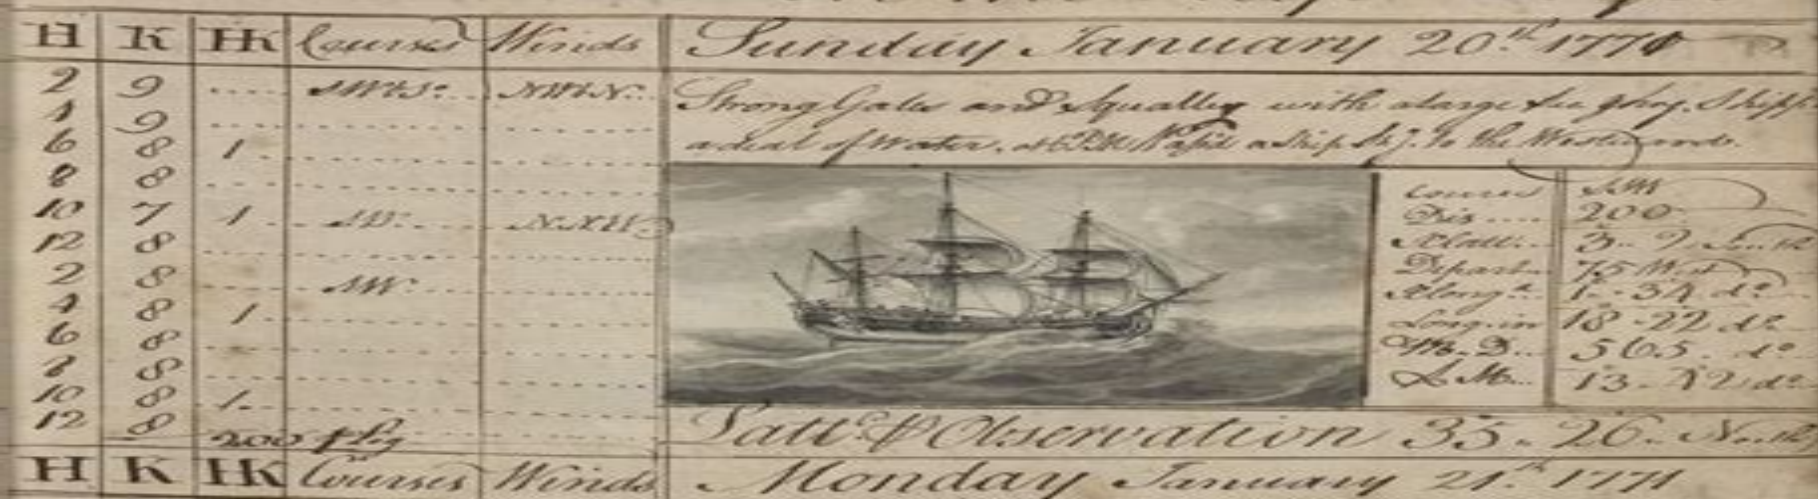 H K HK Courses Winds Sunday January 20th 1771
2 9 .... SWbS° .... NWbN .... Strong Gales and Squally with a large Sea
4 9 .... a deal of Water, at 6 PM a Ship to the Westward.
6 8 1
8 8
10 7 1 SW NNW
12 8
2 8 SW
4 8 1
6 8
8 8
10 8 1
12 8
200
Course
Dis .... 200
Dlatt
Depart 75 West
Dlong d°
Long. in 18 - 22 d°
M. D... 565. d°
d°
Latt. P Observation 35 - 26 - North
H K HK Courses Winds Monday January 21st 1771